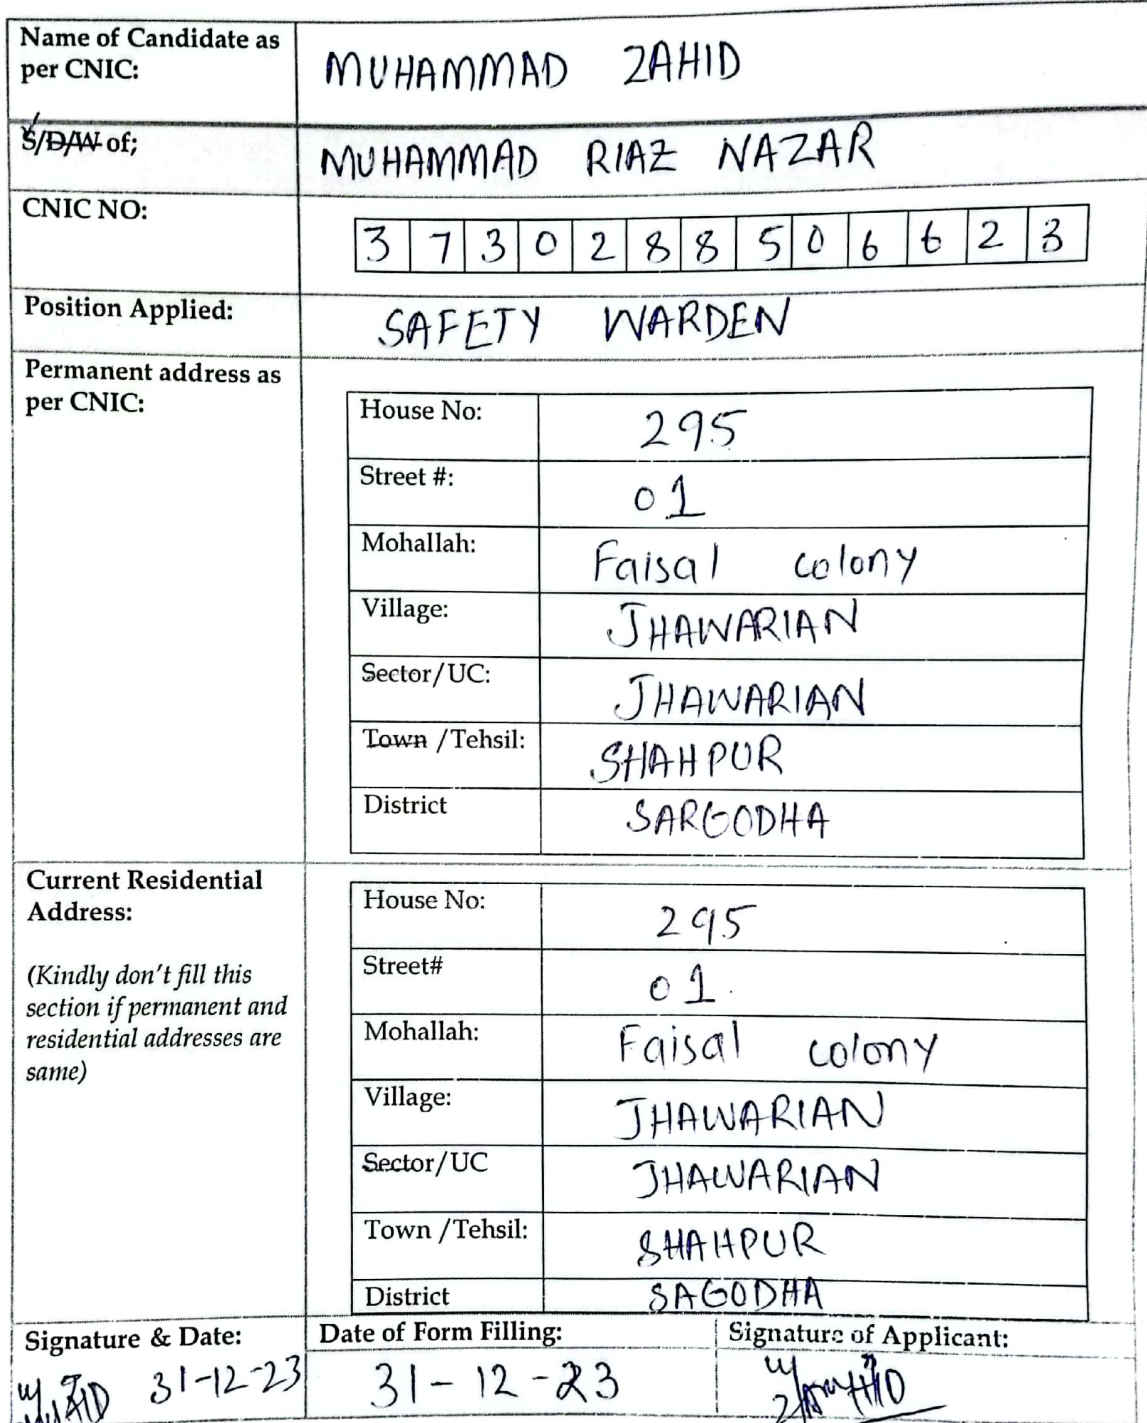 Name of Candidate as per CNIC: MUHAMMAD ZAHID
S/D/W of; MUHAMMAD RIAZ NAZAR
CNIC NO: 3 7 3 0 2 8 8 5 0 6 6 2 3
Position Applied: SAFETY WARDEN
Permanent address as per CNIC:
House No: 295
Street #: 01
Mohallah: Faisal colony
Village: JHAWARIAN
Sector/UC: JHAWARIAN
Town /Tehsil: SHAHPUR
District SARGODHA
Current Residential Address:
(Kindly don't fill this
section if permanent and
residential addresses are
same)
House No: 295
Street# 01
Mohallah: Faisal colony
Village: JHAWARIAN
Sector/UC JHAWARIAN
Town /Tehsil: SHAHPUR
District SAGODHA
Signature & Date: 31-12-23
Date of Form Filling: 31-12-23
Signature of Applicant: